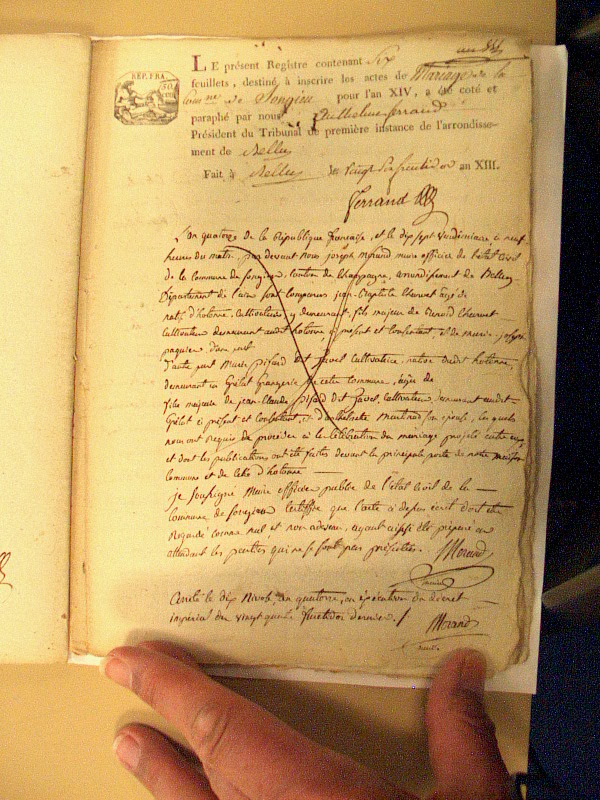 an 14
REP. FRA.
LE présent Registre contenant Six
feuillets, destiné à inscrire les actes de Mariage de la
Comne de Songieu pour l'an XIV, a été coté et
paraphé par nous Anthelme ferrand
Président du Tribunal de première instance de l'arrondisse-
ment de Belley
Fait à Belley le vingt six fructidor an XIII.
ferrand
L'an quatorze de la République française, et le dix sept vendémiaire à neuf
heures du matin, par devant nous joseph Morand maire officier de l'état civil
de la Commune de Songieu, Canton de Champagne, arrondissement de Belley
Département de l'ain sont comparus jean-Baptiste Charvet âgé de
natif d'hotonne, Cultivateur y demeurant, fils majeur de Benoid Charvet
Cultivateur demeurant audit hotonne à présent et Consentant, et de marie-josephte
paquier d'une part
D'autre part Marie pifard dit javel Cultivatrice, native dudit hotonne,
demeurant en Grélat Grangerie de cette Commune, âgée de
fille majeure de jean-Claude pifard dit javel, Cultivateur, demeurant audit
Grélat à présent et Consentant, et d'anthelmette son épouse, lesquels
nous ont requis de procéder à la Célébration du mariage projeté entre eux,
et dont les publications ont été faites devant la principale porte de notre maison
Commune et de Celle d'hotonne
je Soussigné Maire officier public de l'état Civil de la
Commune de Songieu Certiffie que l'acte ci dessus écrit doit être
Regardé comme nul et non advenu, ayant aussi été préparé en
attendant les parties qui ne se sont pas présentées. Morand,
maire
Clos le dix Nivose, an quatorze, en exécution du décret
impérial du vingt quatre fructidor dernier. / Morand
maire